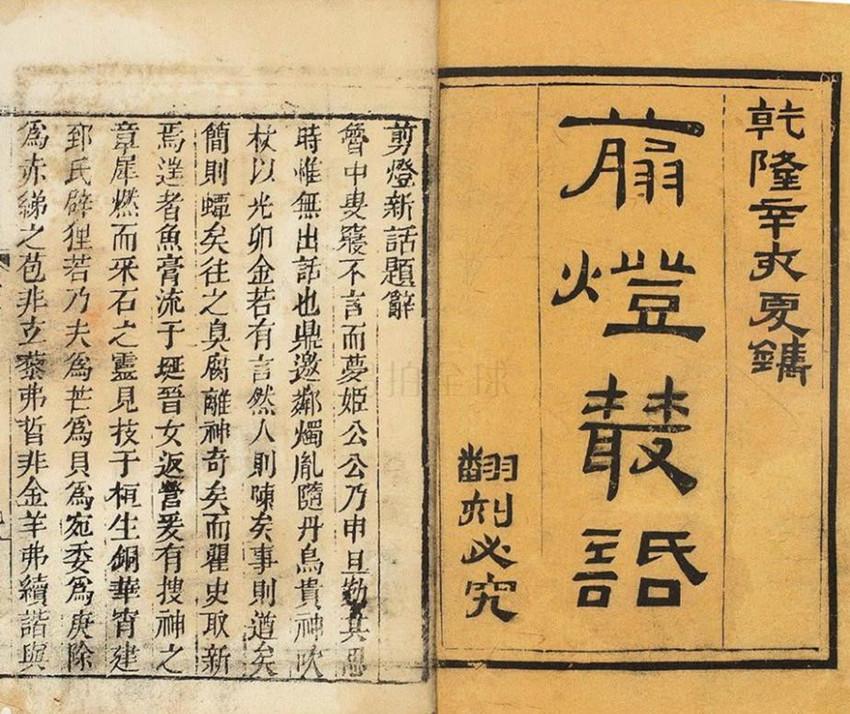 乾隆辛亥夏鐫
翦燈叢話
翻刻必究
剪燈新話題辭
魯中叟寢不言而夢姬公公乃申旦勤其思
時惟無出話也鼎邀鄰燭胤隨丹鳥貴神吹
杖以光卯金若有言然人則陳矣事則遒矣
簡則蟫矣往之臭腐離神奇矣而瞿史取新
焉逹者魚膏流于埏晉女返營爰有搜神之
章犀燃而采石之靈見技于桓生銅華宵建
郅氏辟狸若乃夫爲芒爲貝爲宛委爲庚除
爲赤綈之苞非立藜弗晢非金羊弗續諧與
拍全球